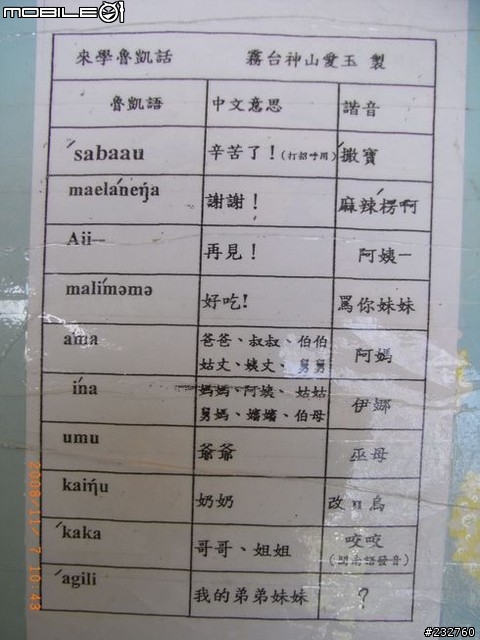 MOBILE01
來學魯凱話 霧台神山愛玉 製
魯凱語 中文意思 諧音
ˊsabaau 辛苦了!(打招呼用) ˊ撒寶
maeláneŋa 謝謝! 麻辣楞啊
Aii— 再見! 阿姨—
malíməmə 好吃! 罵你妹妹
áma 爸爸、叔叔、伯伯 阿媽
姑丈、姨丈、舅舅
ína 媽媽、阿姨、姑姑 伊娜
舅媽、嬸嬸、伯母
umu 爺爺 巫母
kaiŋu 奶奶 改ㄫ烏
ˊkaka 哥哥、姐姐 咬咬
(閩南語發音)
ˊagili 我的弟弟妹妹 ?
2008/11/ 7 10:43
#232760